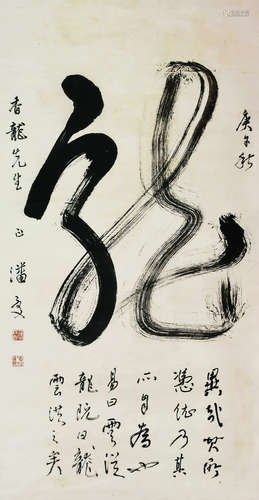 庚午秋
龍
異哉其所
憑依乃其
所自為也
易曰雲從
龍既曰龍
雲從之矣
香龍先生 正
潘受